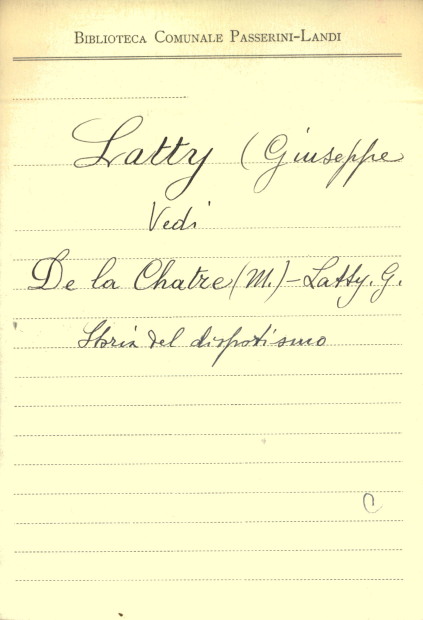 BIBLIOTECA COMUNALE PASSERINI-LANDI
Latty (Giuseppe
Vedi
De la Chatre (M.) - Latty. G.
Storia del dispotismo
C